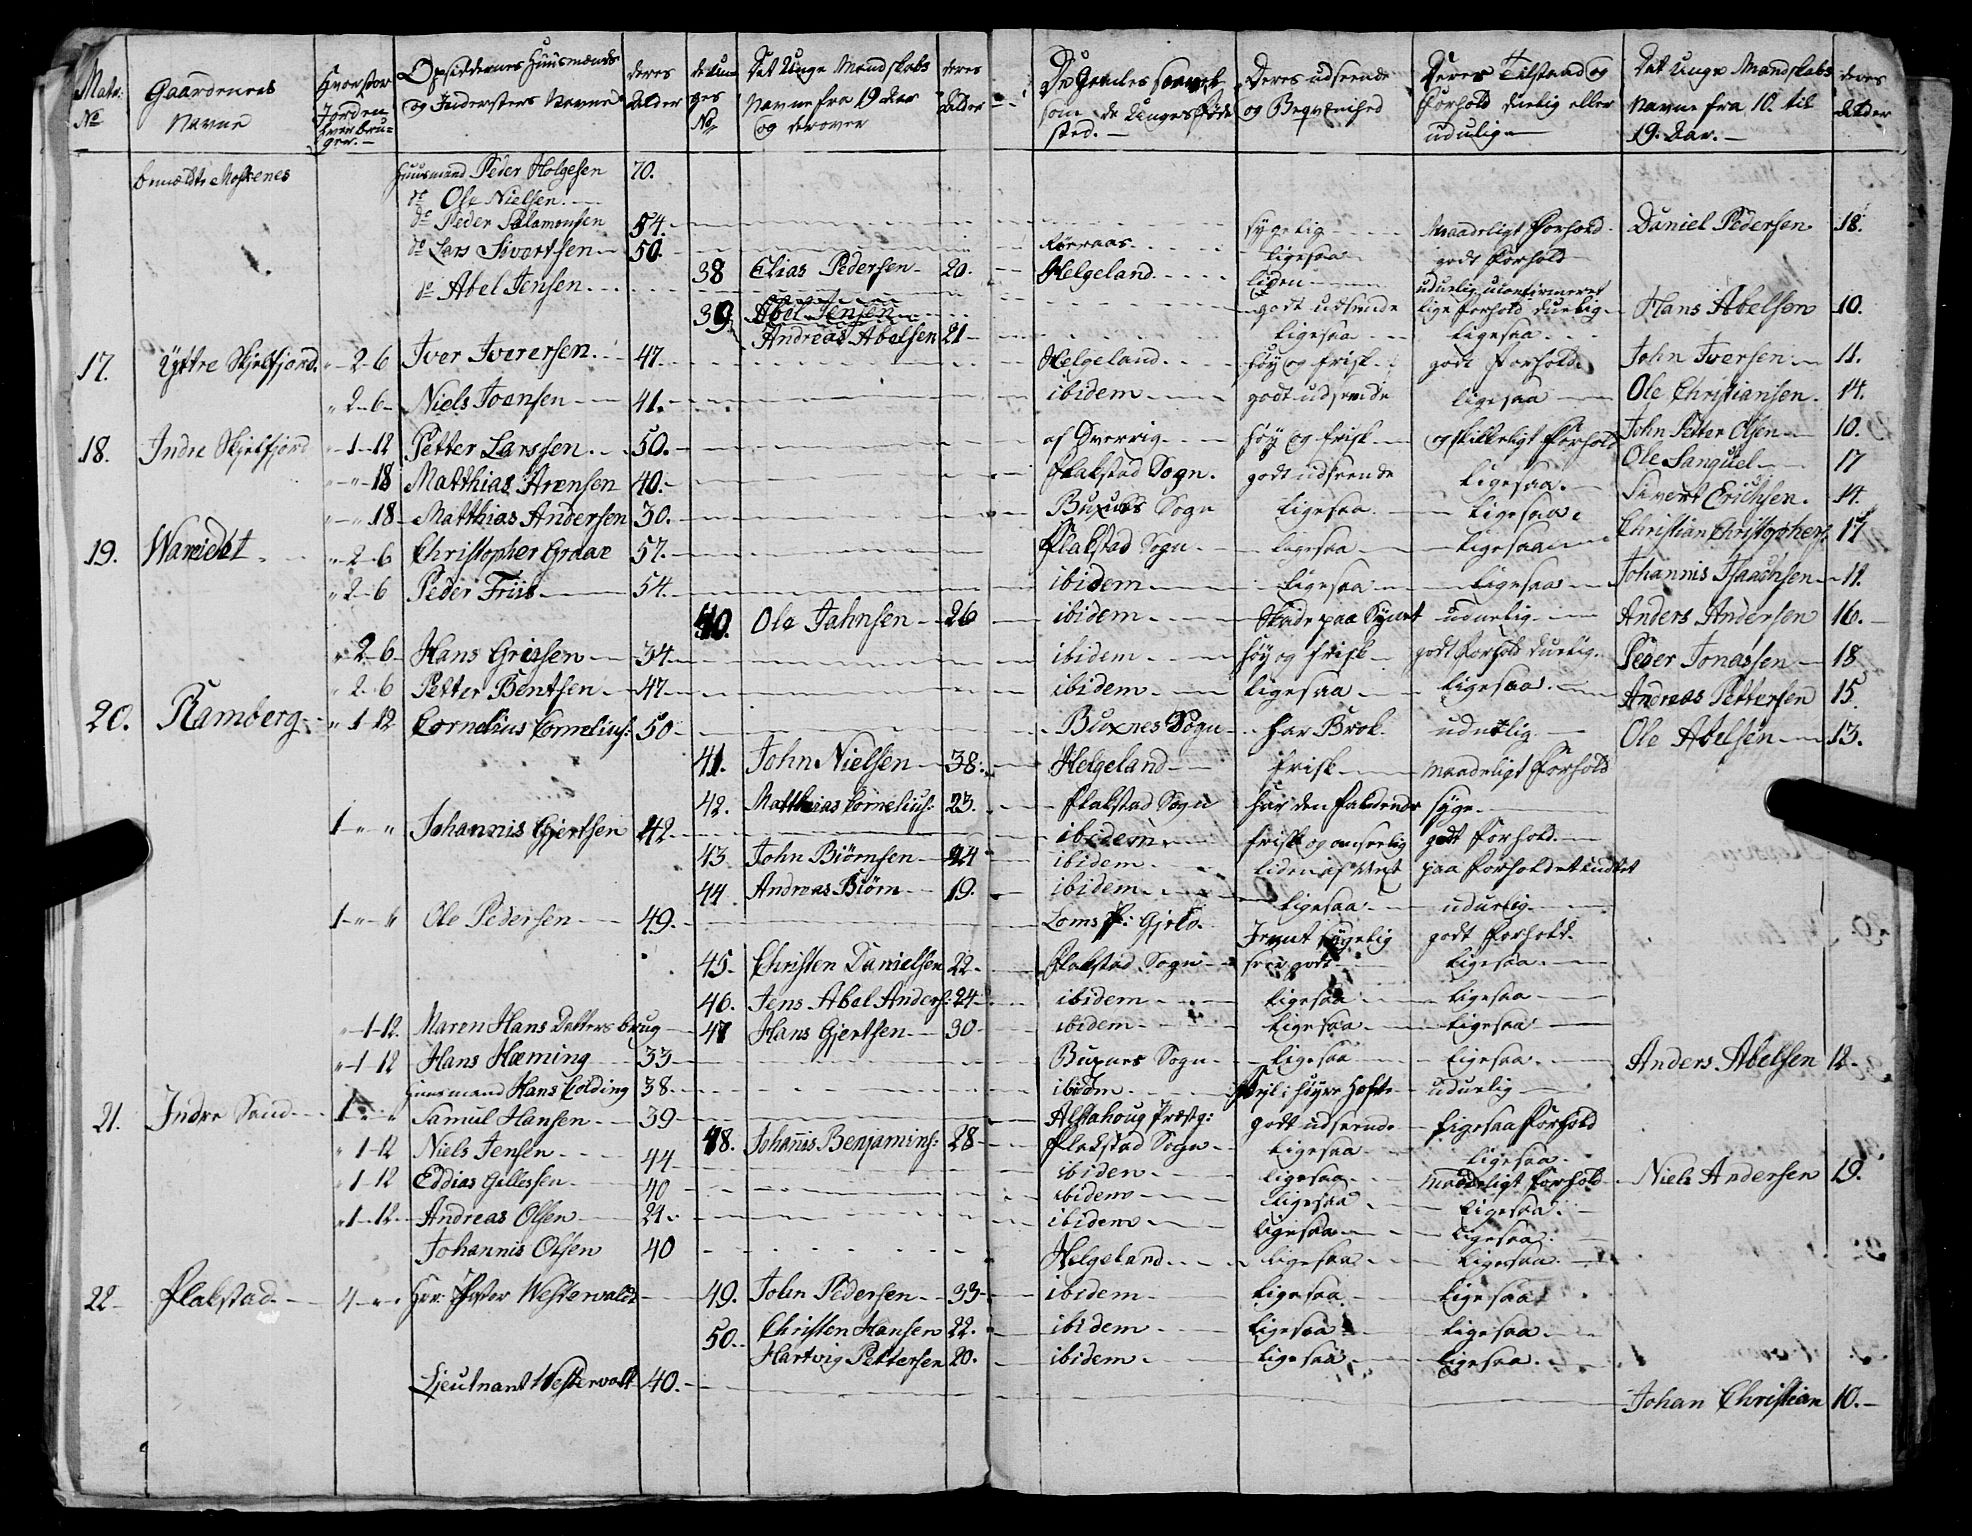 Matr: No | Gaardenes Navne | Hvor stor Jorden hver bruger.- | Opsiddernes Huusmænds og Indersters Navne | deres Alder | de Unges No | Det Unge Mandskabs Navne fra 19 Aar og derover | deres Alder | De Gamles saavel som de Unges Føde sted.- | Deres udseende og Beqvemhed | Deres Tilstand og Forhold duelig eller uduelig | Det Unge Mandskabs Navne fra 10. til 19. Aar.- | deres Alder
Huusmand Peder Holgesen 70.
do Ole Nielsen.
do Peder Salamonsen 54. sygelig Maadeligt Forhold Daniel Pedersen 18.
do Lars Sivertsen 50. Røeraas ligesaa godt Forhold
38 Elias Pedersen 20. Helgeland liden
do Abel Jensen uduelig uconfirmeret
39 Abel Jensen godt udseende lige forhold duelig Hans Abelsen 10.
Andreas Abelsen 21 ligesaa ligesaa
17. Yttre Skjelfjord. 2-6 Iver Iverersen. 47. Helgeland høy og frisk godt Forhold John Iversen 11.
2-6 Niels Joensen 41. ibidem godt udseende ligesaa Ole Christiansen 14.
18. Indre Skjelfjord 1-12 Petter Larssen 50. af Sverrig høy og frisk og skikkeligt Forhold John Petter Olsen 10.
Ole Sanquel 17
18 Matthias Arensen 40. Flakstad Sogn. godt udseende ligesaa Sivert Erichsen. 14.
18 Matthias Andersen 30. Buxnes Sogn ligesaa ligesaa
19. 2-6 Christopher Graae 57. Flakstad Sogn ligesaa ligesaa Christian Christophers. 17
2-6 Peder Friis 54. ibidem ligesaa ligesaa Johannis Isaachsen 11.
40. Ole Jahnsen 26 ibidem Skade paa Synet uduelig Anders Andersen 16.
2-6 Hans Grissen 34 ibidem høy og frisk godt Forhold duelig. Peder Jonassen 18
2-6 Petter Bentsen 47 ibidem ligesaa ligesaa Andreas Pettersen 15.
20. Ramberg 1-12 Cornelius Cornelius: 50 Buxnes Sogn har Brok uduelig Ole Abelsen 13.
41. John Nielsen 38 Helgeland frisk maadeligt Forhold
42. Matthias Cornelius: 23. Flakstad Sogn har den faldende syge
1 " " Johannis Gjertsen 42 ibidem frisk og anseelig godt Forhold
43. John Biørnsen 24 ibidem liden af Vext paa Forholdet intet
44. Andreas Biørn 19. ibidem ligesaa uduelig
1 " " Ole Pedersen 49. Loms P: Gjeld. Jevnt sygelig godt Forhold.
45. Christen Danielsen 22 Flakstad Sogn seer godt ligesaa
46. Jens Abel Anders: 24 ibidem ligesaa ligesaa
1-12. Maren Hans Datters brug 47 Hans Gjertsen 30 ibidem ligesaa ligesaa
1-12 Hans Hæming 33 Buxnes Sogn ligesaa ligesaa Anders Abelsen 12.
Huusmand Hans Colding 38. ibidem Feil i høyre Hofte uduelig
21. Indre Sand 1 " Samul Hansen 39 Alstahoug Præstg: godt udseende ligesaa Forhold
1-12 Niels Jensen 44 48. Johannis Benjamins: 28 Flakstad Sogn ligesaa ligesaa
1-12 Eddias Gillessen 40 ibidem ligesaa maadeligt Forhold Niels Andersen 19.
1-12 Andreas Olsen 24. ibidem ligesaa ligesaa
ibidem ligesaa ligesaa
Johannis Olsen 40 Helgeland ligesaa ligesaa
22 Flakstad 4 " Hrr: Pastor Westerwaldt 49. John Pedersen 33 ibidem ligesaa ligesaa
50. Christen Hansen 22. ibidem ligesaa ligesaa
Hartvig Pettersen 20. ibidem ligesaa ligesaa
Lieutnant Westervaldt 40.
Johan Christian 10.